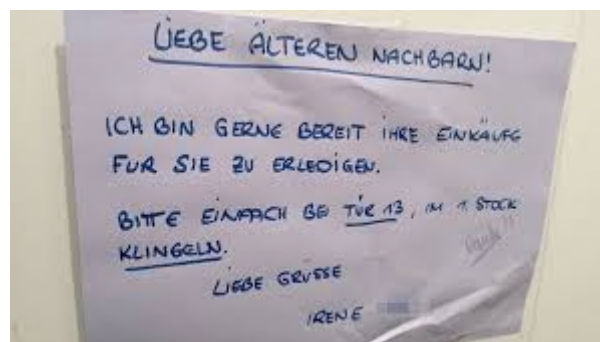 LIEBE ÄLTEREN NACHBARN!
ICH BIN GERNE BEREIT IHRE EINKÄUFE
FÜR SIE ZU ERLEDIGEN.
BITTE EINFACH BEI TÜR 13, IM 1. STOCK
KLINGELN.
LIEBE GRÜSSE
IRENE